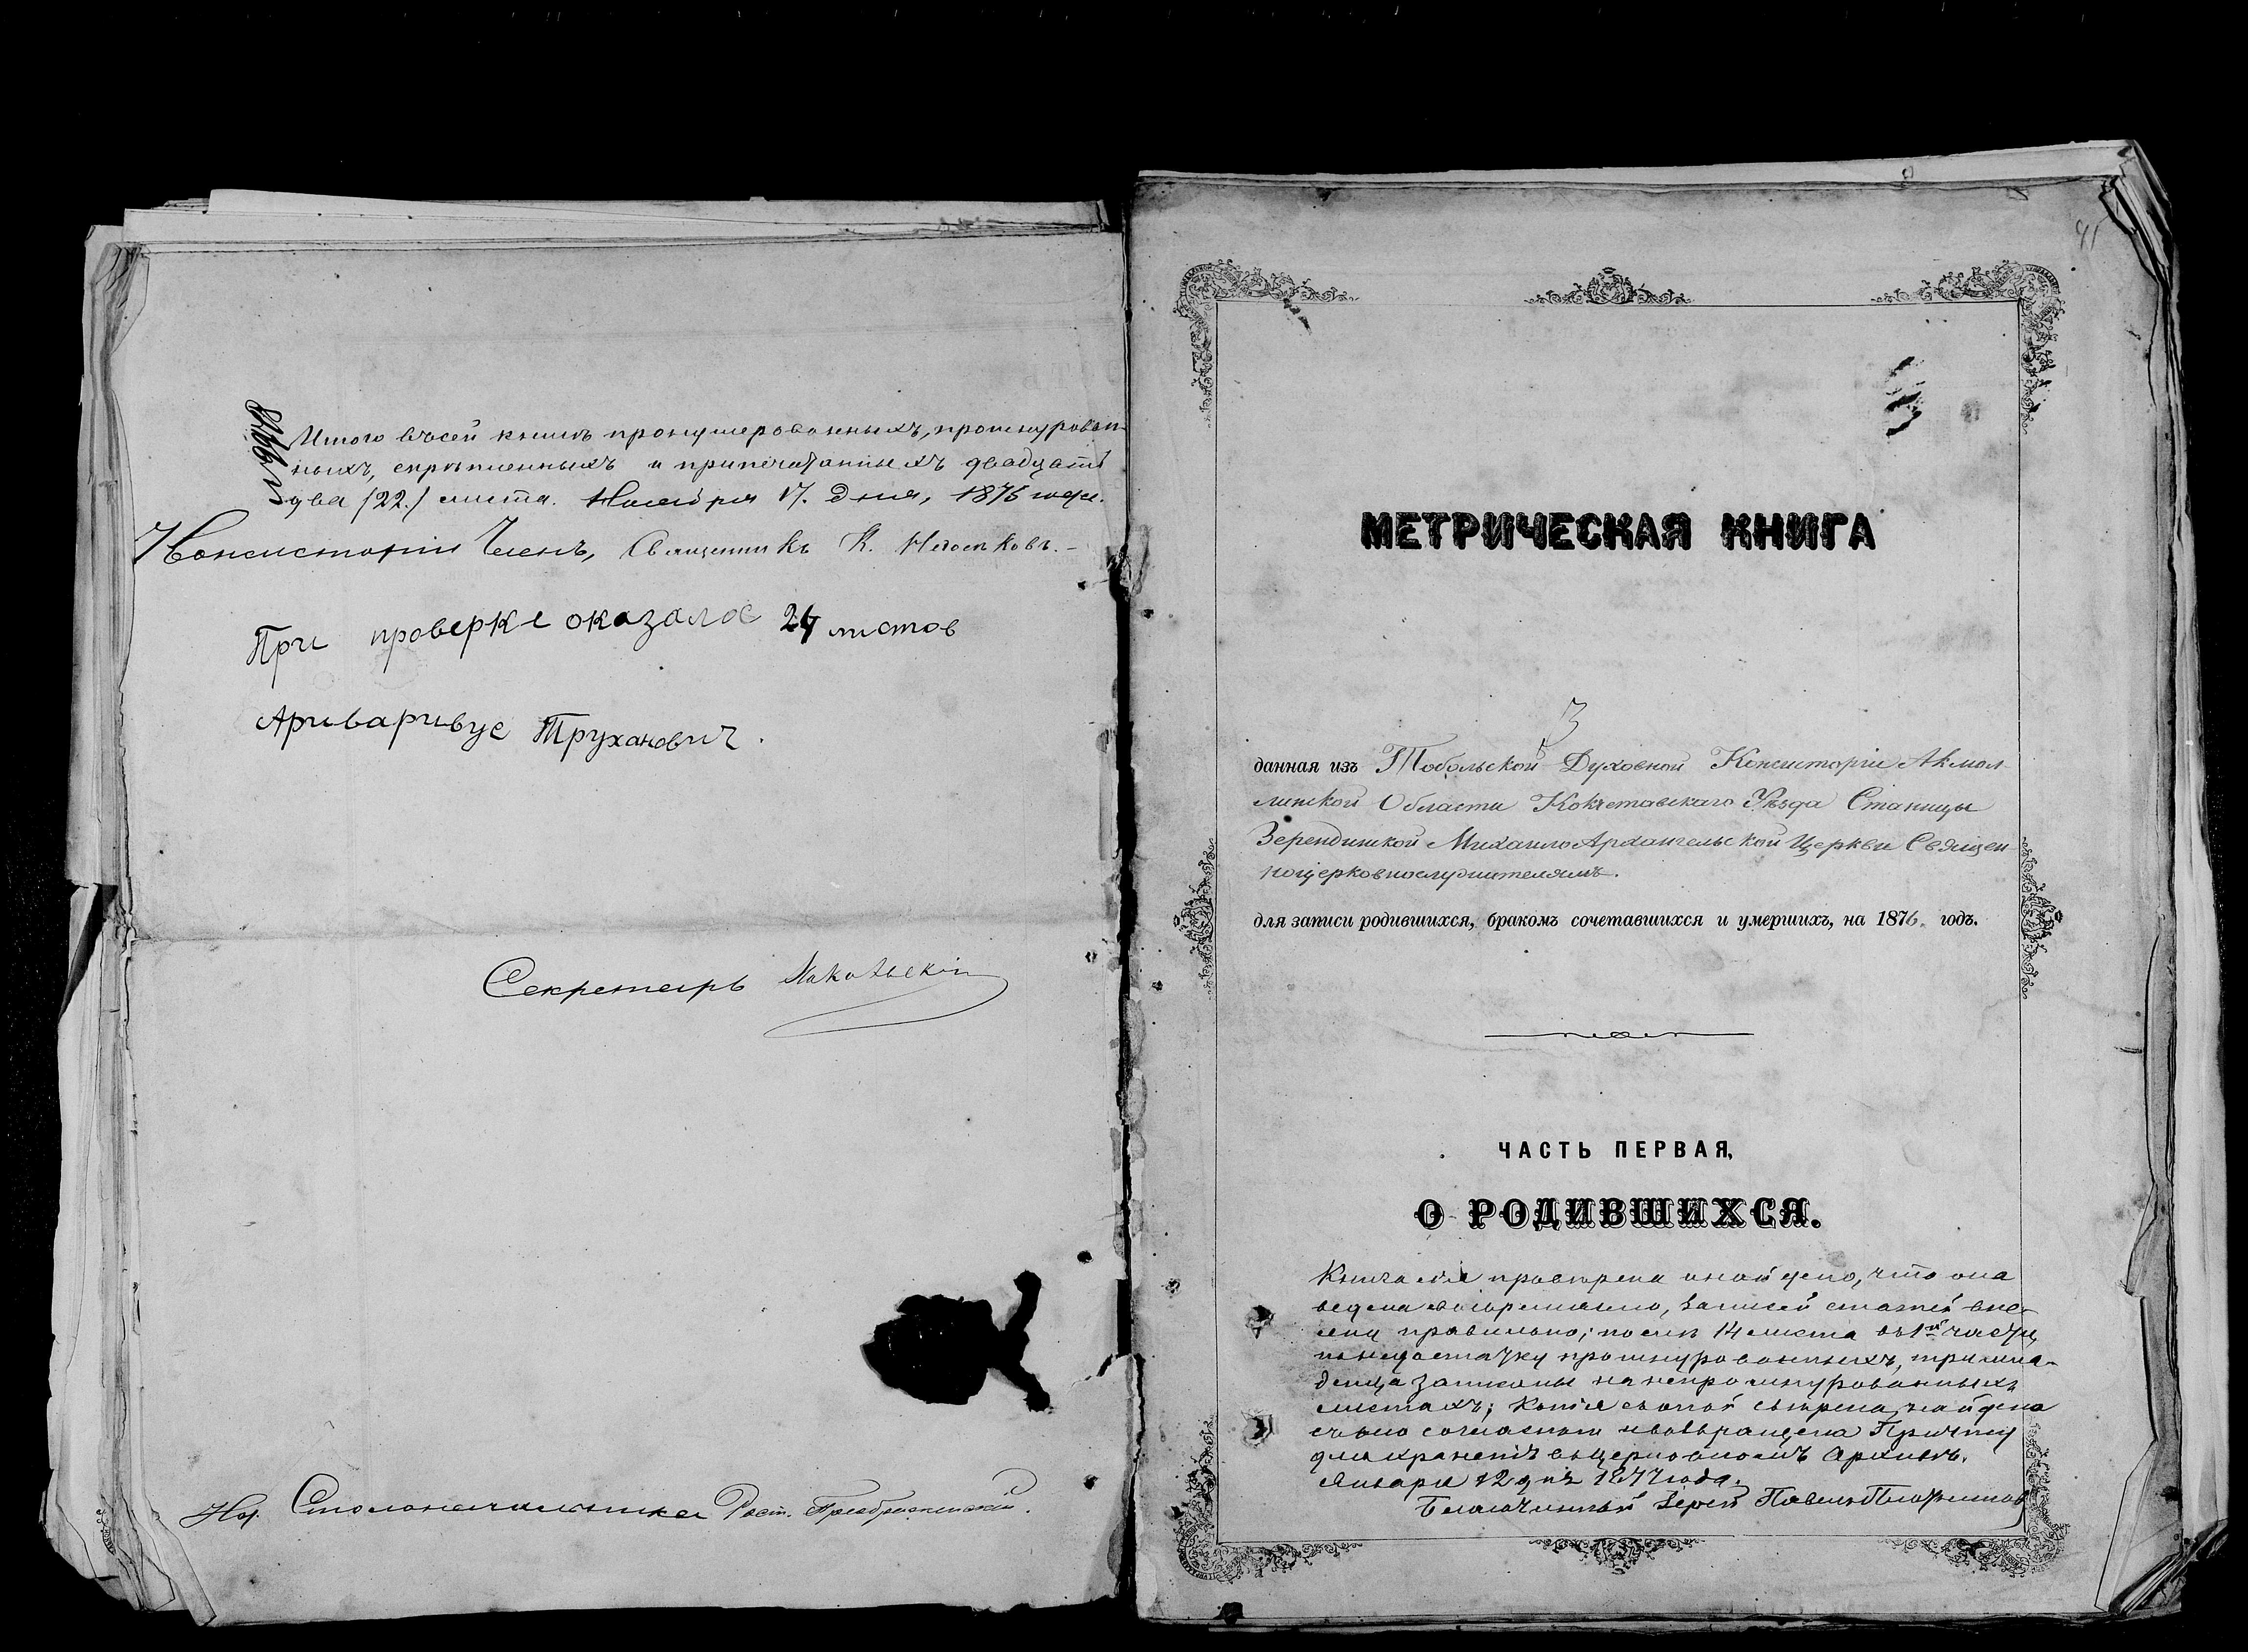 Итого въ сей книгѣ пронумерованныхъ, прошнурован-
ныхъ, скрѣпленныхъ и припечатанныхъ двадцать
два (22.) листа. Ноября 17. дня, 1875 года.
Консисторіи Членъ, Священникъ К. Недосѣковъ.
При проверке оказалос 24 листов
Архивариус Труханович.
Секретарь
И. д. Столоначальника Раст. Преображенскій.
41
МЕТРИЧЕСКАЯ КНИГА
3
данная изъ Тобольской Духовной Консисторіи Акмол-
линской Области Кокчетавскаго Уѣзда Станицы
Зерендинской Михаило Архангельской Церкви Священ
ноцерковнослужителямъ.
для записи родившихся, бракомъ сочетавшихся и умершихъ, на 1876. годъ.
ЧАСТЬ ПЕРВАЯ,
О РОДИВШИХСЯ.
Книга сія просмотрена и найдено, что она
ведена своевременно, записей статей вне-
сены правильно; послѣ 14 листа въ 1й части,
по недостатку прошнурованныхъ, три мла-
денца записаны на непрошнурованныхъ
листахъ; копія съ оной свѣрена, найдена
съ нею согласною и возвращена Причту
для храненія въ церковномъ Архивѣ.
Января 12 дня 1877 года.
Благочинный Іерей Павелъ